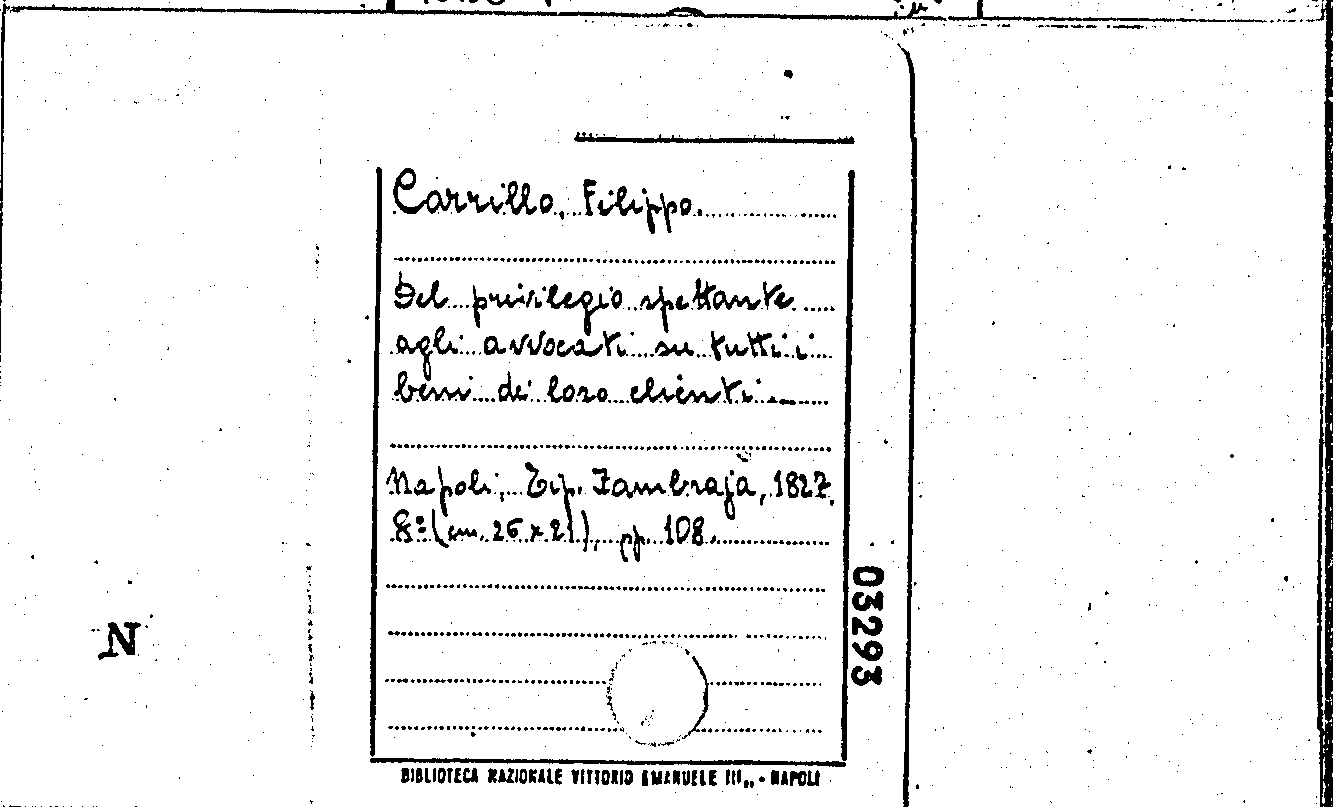 Carrillo, Filippo.
Del privilegio spettante
agli avvocati su tutti i
beni dei loro clienti.
Napoli, Tip. Zambraja, 1827.
8º (cm. 26 x 21), pp. 108.
03293
N
BIBLIOTECA NAZIONALE VITTORIO EMANUELE III„ - NAPOLI